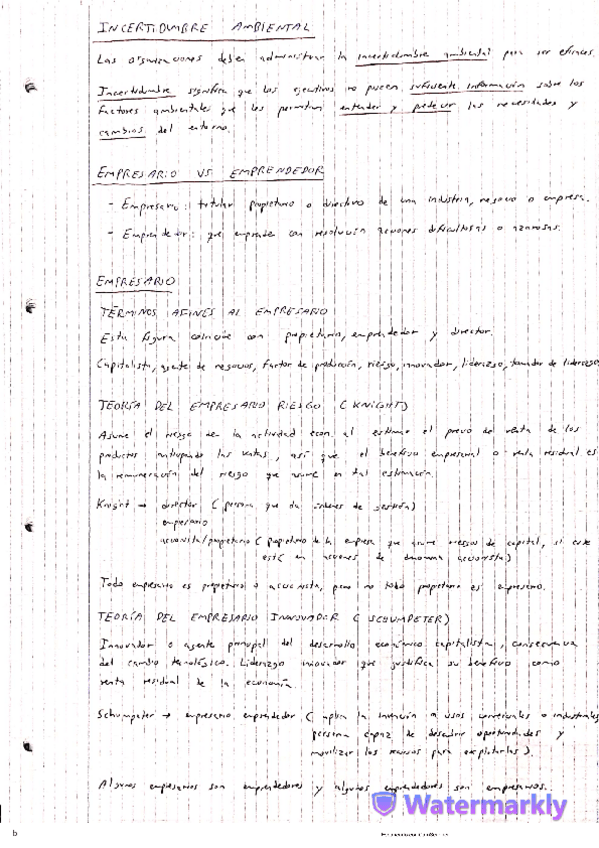 INCERTIDUMBRE AMBIENTAL
Las organizaciones deben administrar la incertidumbre ambiental para ser eficaces.
Incertidumbre significa que los ejecutivos no poseen suficiente información sobre los
factores ambientales que les permitan entender y predecir las necesidades y
cambios del entorno.
EMPRESARIO VS EMPRENDEDOR
- Empresario: titular propietario o directivo de una industria, negocio o empresa.
- Emprendedor: que emprende con resolución acciones dificultosas o azarosas.
EMPRESARIO
TÉRMINOS AFINES AL EMPRESARIO
Esta figura coincide con propietario, emprendedor y director.
Capitalista, agente de negocios, factor de producción, riesgo, innovador, liderazgo, tomador de liderazgo
TEORÍA DEL EMPRESARIO RIESGO (KNIGHT)
Asume el riesgo de la actividad econ. al estimar el precio de venta de los
productos anticipando las ventas, así que el beneficio empresarial o renta residual es
la remuneración del riesgo que asume en tal estimación.
Knight → director (persona que da órdenes de gestión)
empresario
accionista/propietario (propietario de la empresa que asume riesgos de capital, si este
está en acciones se denomina accionista)
Todo empresario es propietario o accionista, pero no todo propietario es empresario.
TEORÍA DEL EMPRESARIO INNOVADOR (SCHUMPETER)
Innovador o agente principal del desarrollo económico capitalista, consecuencia
del cambio tecnológico. Liderazgo innovador que justifica su beneficio como
renta residual de la economía.
Schumpeter → empresario emprendedor (aplica la invención a usos comerciales o industriales,
persona capaz de descubrir oportunidades y
movilizar los recursos para explotarlas).
Algunos empresarios son emprendedores y algunos emprendedores son empresarios.
Watermarkly
6